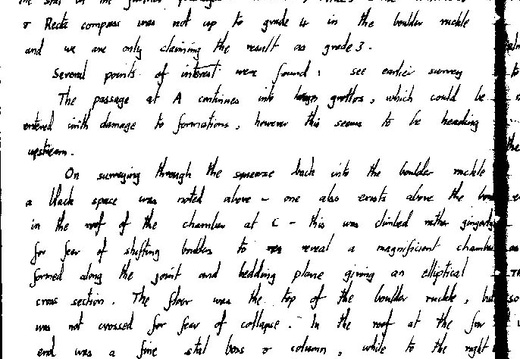 & Recta compass was not up to grade 4 in the boulder ruckle
and we are only claiming the result as grade 3.
Several points of interest were found : see earlier survey
The passage at A continues into grottos, which could be
entered with damage to formations, however this seems to be heading
upstream.
On surveying through the squeeze back into the boulder ruckle
a black space was noted above - one also exists above the
in the roof of the chamber at C - this was climbed rather gingerly
for fear of shifting boulders to reveal a magnificent chamber
formed along the joint and bedding plane giving an elliptical
cross section. The floor was the top of the boulder ruckle, but
was not crossed for fear of collapse. In the roof at the far
end was a fine stal boss & column, while to the right